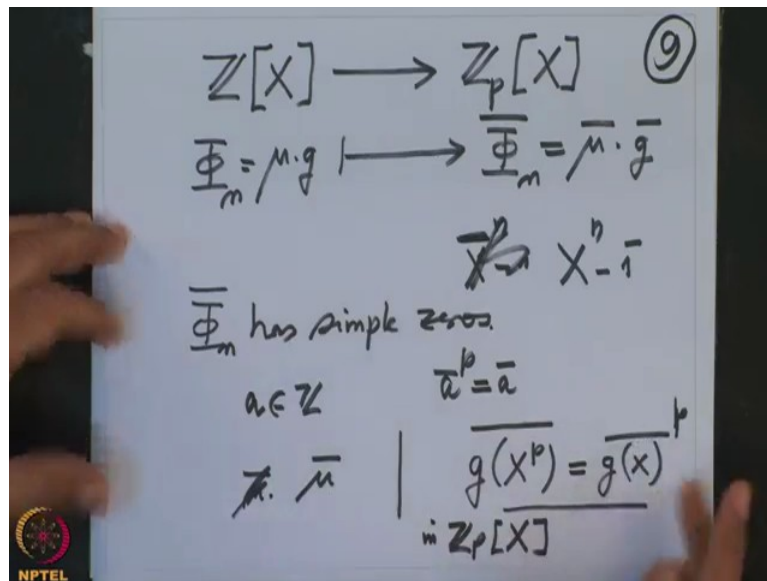 ℤ[X] ⟶ ℤ_p[X] ⑨
Φ_n = μ·g ⟼ Φ̅_n = μ̅·g̅
X^n - 1̅
Φ̅_n has simple zeros.
a ∈ ℤ a̅^p = a̅
μ̅ | \overline{g(X^p)} = \overline{g(X)}^p
in ℤ_p[X]
NPTEL